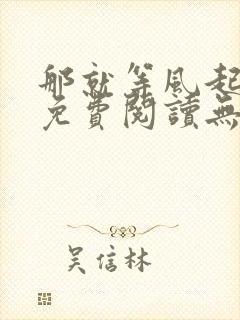 那就等風起
免費閱讀無
吳信林